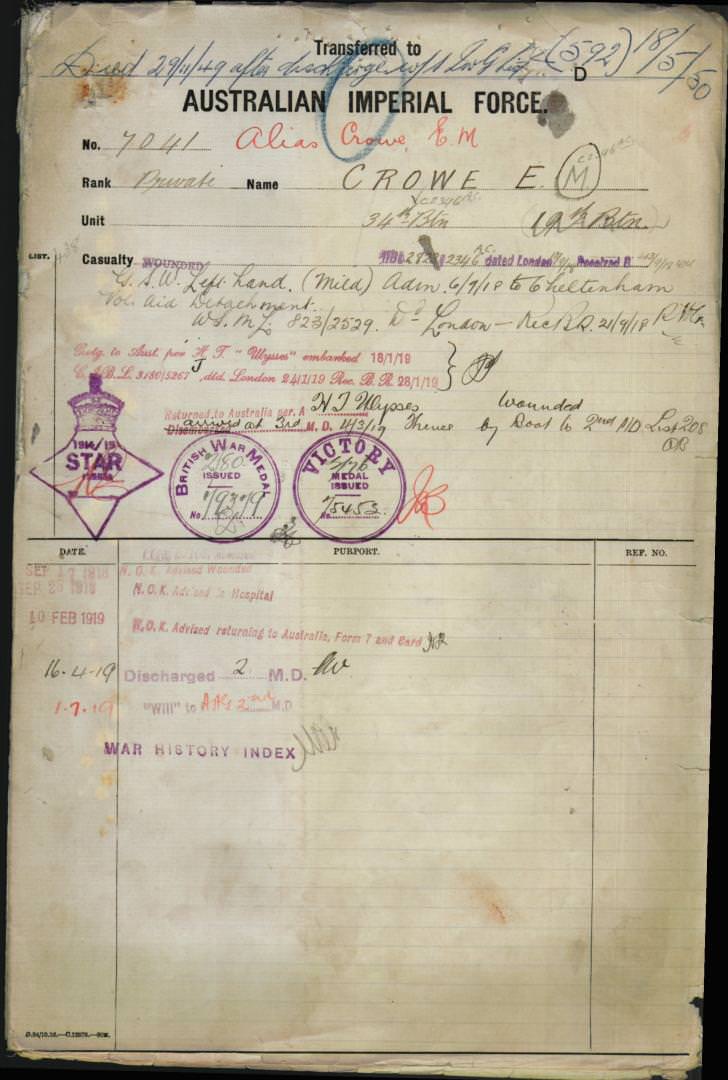 Transferred to
Died 29/11/49 after discharge (592) 18/5/50
D
AUSTRALIAN IMPERIAL FORCE.
No. 7041 Alias Crowe, E. M
Rank Private Name CROWE E. M
Unit 34th Btn 19th Btn.
LIST. Casualty WOUNDED dated London
G. S. W. Left hand. (Mild) Adm. 6/9/18 to Cheltenham
Vol. Aid Detachment.
W.S.M.L. 823/2529. Do London - Rec R.D. 21/9/18
Retg. to Aust. per H. T. "Ulysses" embarked 18/1/19
C.I.B.L. 3180/5267, dtd. London 24/1/19 Rec. B. R. 28/1/19
Returned to Australia per. A H T Ulysses wounded
Disembarked arrived at 3rd M. D. 4/3/19 Thence by Boat to 2nd M.D. List 208
1914/15
STAR
BRITISH WAR MEDAL
ISSUED
No.
VICTORY
MEDAL
ISSUED
No. 75453
DATE. PURPORT. REF. NO.
SEP 17 1918 N. O. K. Advised Wounded
SEP 25 1918 N. O. K. Advised in Hospital
10 FEB 1919 N. O. K. Advised returning to Australia, Form 7 and Card
16-4-19 Discharged 2 M.D.
1-7-19 "Will" to AAG 2nd M.D
WAR HISTORY INDEX